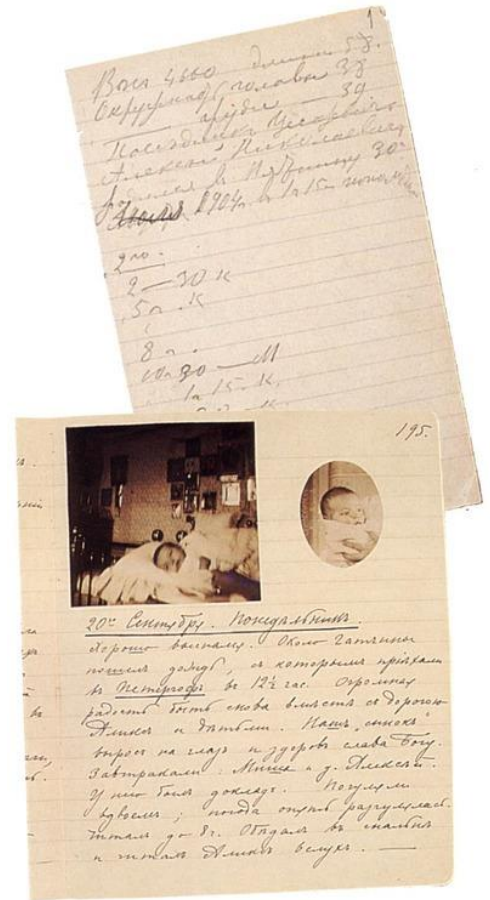 1
Вѣсъ 4660 длина 58
Окружность головы 38
груди — 39
Цесаревичъ
Алексѣй Николаевичъ
родился въ Пятницу 30го
1904 г. въ 1 ч 15 м пополудни
2 — 30 К
5 ч. К
8 ч.
10 ч 30 — М
1 ч 15. К.
195.
20го Сентября. Понедѣльникъ.
Хорошо выспались. Около Гатчины
пошелъ дождь, съ которымъ пріѣхали
въ Петергофъ въ 12½ час. Огромная
радость быть снова вмѣстѣ съ дорогою
Аликсъ и дѣтьми. Нашъ „сынокъ“
выросъ на глазъ и здоровъ слава Богу.
Завтракали: Миша и д. Алексѣй.
У него былъ докладъ. Погуляли
вдвоемъ; погода опять разгулялась.
Читалъ до 8 ч. Обѣдали въ спальнѣ
и читалъ Аликсъ вслухъ. —